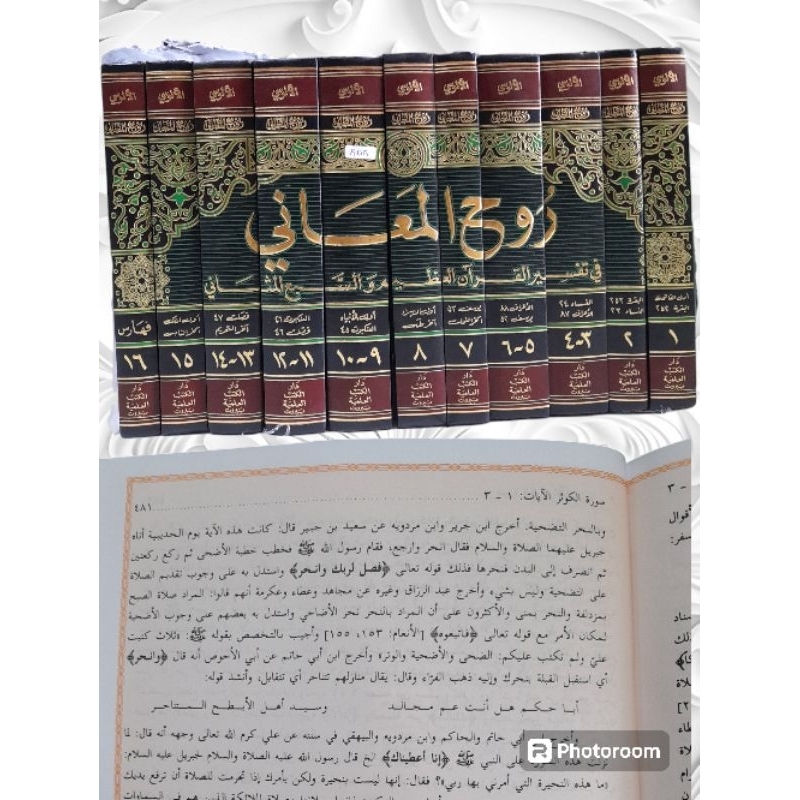 الآلوسي
روح المعاني
روح المعاني
في تفسير القرآن العظيم والسبع المثاني
فهارس
١٦
١٥
فصلت ٤٧
آخر التحريم
١٣-١٤
العنكبوت ٤٦
فصلت ٤٦
١١-١٢
أول الأنبياء
العنكبوت ٤٥
٩-١٠
٨
يوسف ٥٣
٧
الأعراف ٨٨
يوسف ٥٢
٥-٦
النساء ٢٤
الأعراف ٨٧
٣-٤
البقرة ٢٥٣
النساء ٢٣
٢
أول الفاتحة
البقرة ٢٥٢
١
دار
الكتب
العلمية
بيروت
سورة الكوثر الآيات: ١ - ٣ ٤٨١
وبالنحر التضحية. أخرج ابن جرير وابن مردويه عن سعيد بن جبير قال: كانت هذه الآية يوم الحديبية أتاه
جبريل عليهما الصلاة والسلام فقال انحر وارجع، فقام رسول الله ﷺ فخطب خطبة الأضحى ثم ركع ركعتين
ثم انصرف إلى البدن فنحرها فذلك قوله تعالى ﴿فصل لربك وانحر﴾ واستدل به على وجوب تقديم الصلاة
على التضحية وليس بشيء وأخرج عبد الرزاق وغيره عن مجاهد وعطاء وعكرمة أنهم قالوا: المراد صلاة الصبح
بمزدلفة والنحر بمنى والأكثرون على أن المراد بالنحر نحر الأضاحي واستدل به بعضهم على وجوب الأضحية
لمكان الأمر مع قوله تعالى ﴿فاتبعوه﴾ [الأنعام: ١٥٣، ١٥٥] وأجيب بالتخصيص بقوله ﷺ: «ثلاث كتبت
عليّ ولم تكتب عليكم: الضحى والأضحية والوتر» وأخرج ابن أبي حاتم عن أبي الأحوص أنه قال ﴿وانحر﴾
أي استقبل القبلة بنحرك وإليه ذهب الفرّاء وقال: يقال منازلهم تتناحر أي تتقابل، وأنشد قوله:
أبا حكم هل أنت عم مجالد وسيد أهل الأبطح المتناحر
وأخرج حاتم والحاكم وابن مردويه والبيهقي في سننه عن علي كرم الله تعالى وجهه أنه قال: لما
على النبي ﷺ ﴿إنا أعطيناك﴾ الخ قال رسول الله عليه الصلاة والسلام لجبريل عليه السلام:
«ما هذه النحيرة التي أمرني بها ربي»؟ فقال: إنها ليست بنحيرة ولكن يأمرك إذا تحرمت للصلاة أن ترفع يديك
Photoroom